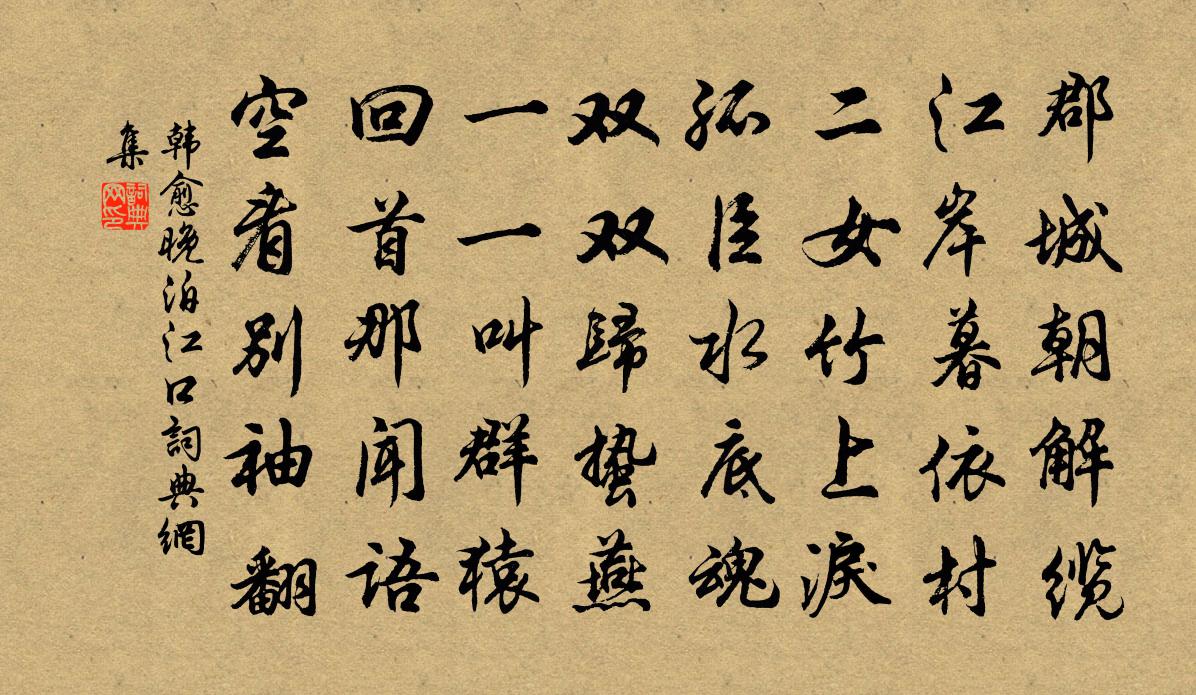 郡城朝解缆
江岸暮依村
二女竹上淚
孤臣水底魂
双双歸蛰燕
一一叫群猿
回首那闻语
空看别袖翻
韩愈晚泊江口詞典網
集
詞典网印